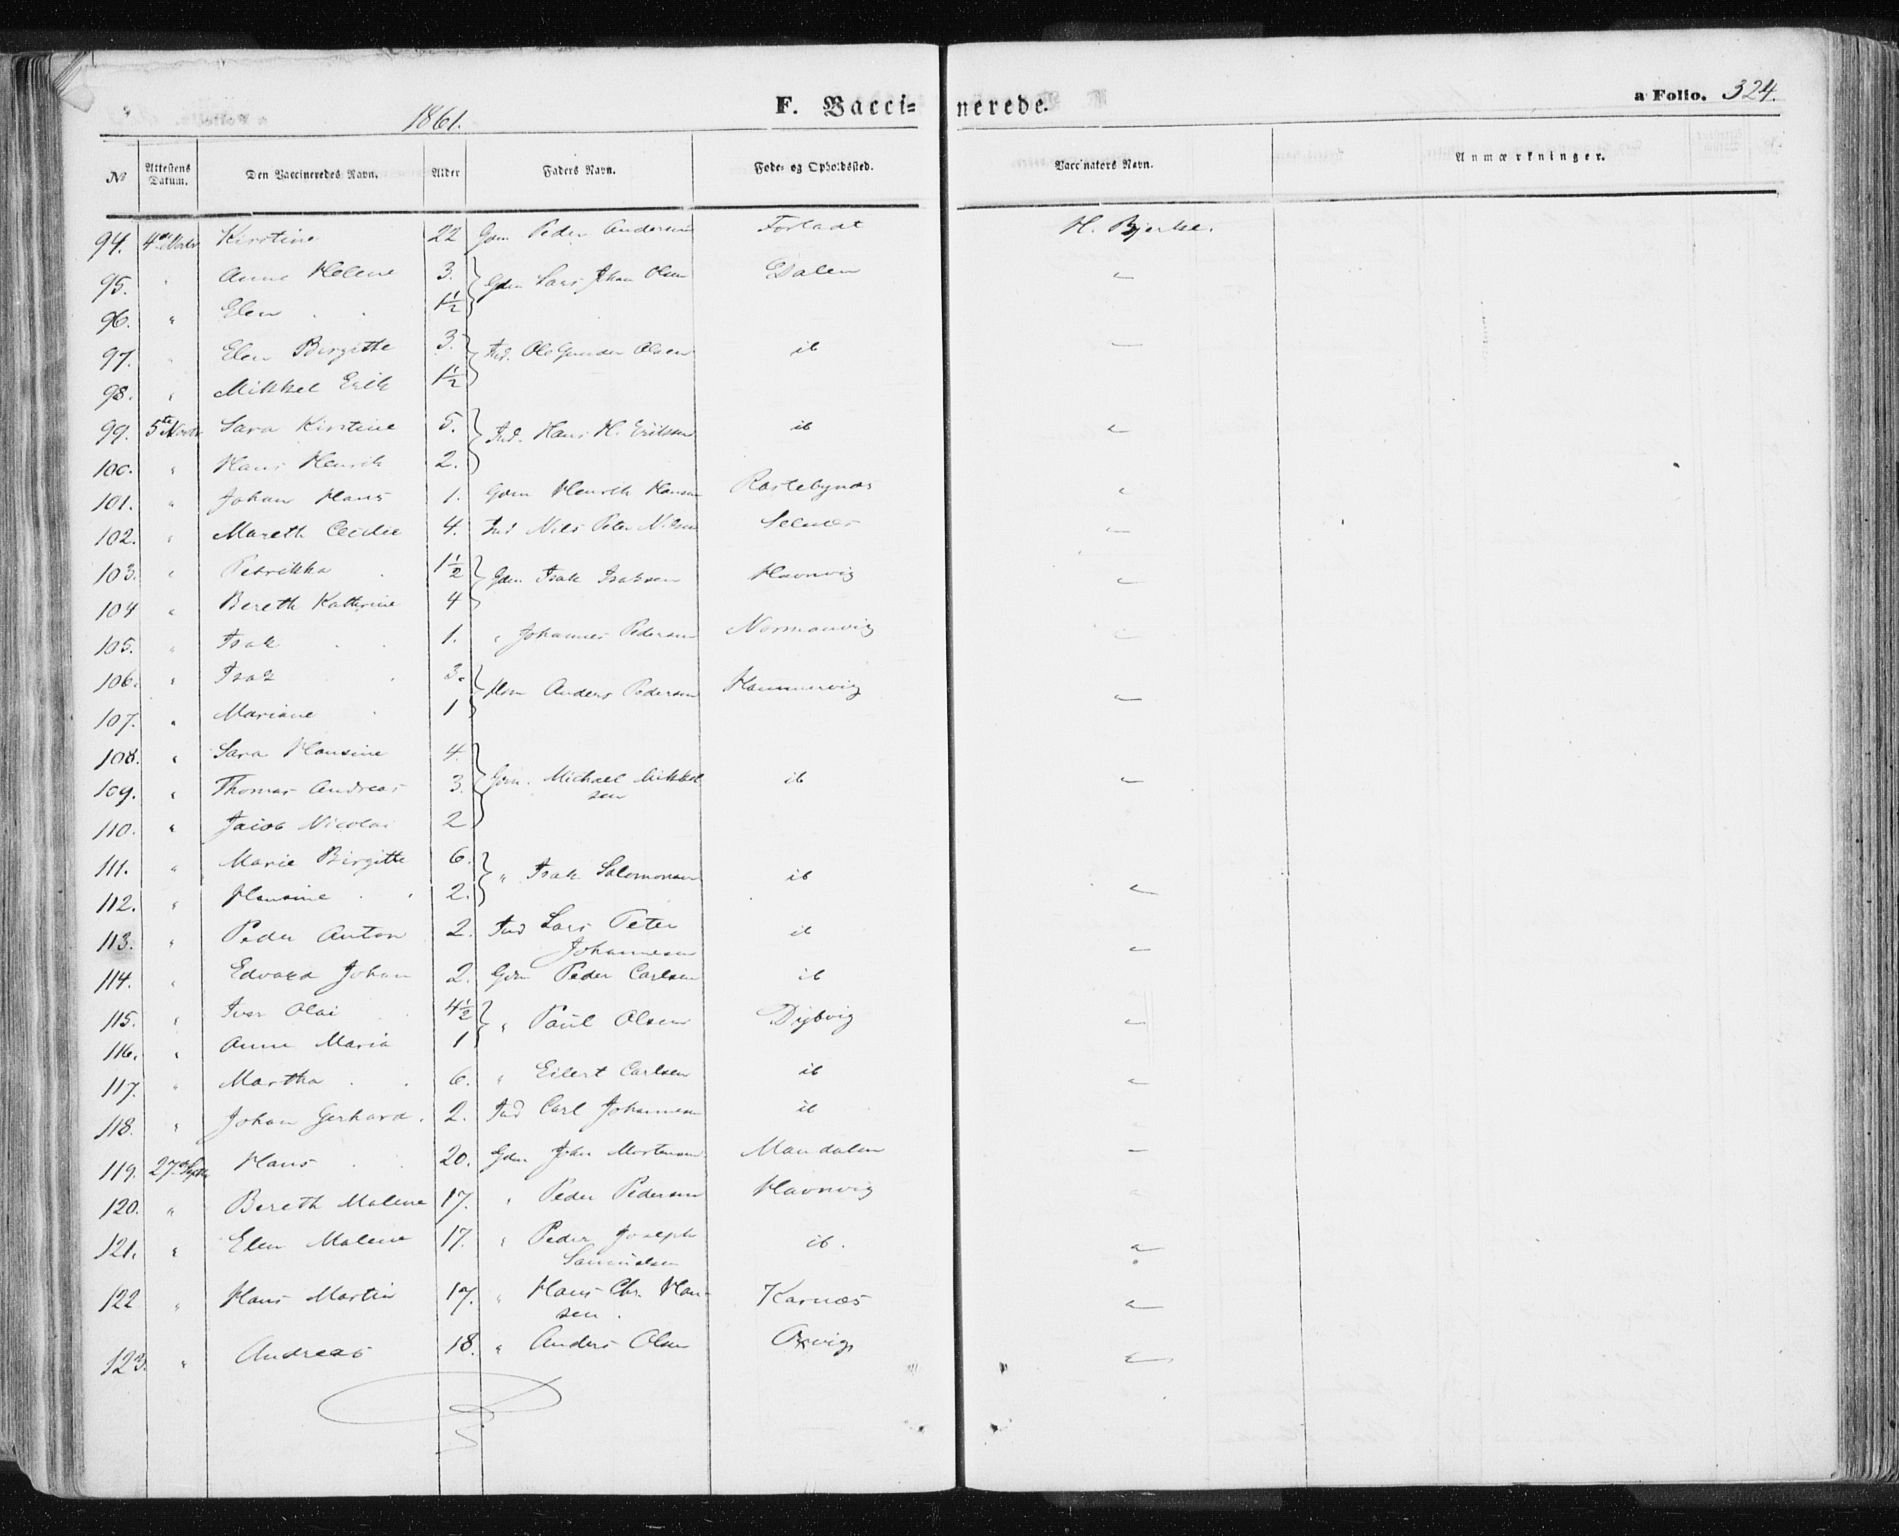 1861. F. Vaccinerede. a Folio. 324.
№ Attestens Datum. Den Vaccineredes Navn. Alder Faders Navn. Føde- og Opholdssted. Vaccinators Navn. Anmærkninger.
94. 4de Novbr Kirstine 22 Gdm Peder Andersen H. Bjerke.
95. " Anne Helene 3. Gdm Lars Johan Olsen Dalen "
96. " Elen 1½
97. " Elen Birgitte 3. Ind. Ole Gunder Olsen ib "
98. " Mikkel Erik 1½
99. 5te Novbr Sara Kirstine 5. Ind. Hans H. Eriksen ib "
100. " Hans Henrik 2.
101. " Johan Hans 1. Gdm Henrik Hansen "
102. " Mareth Cecilie 4. Ind Nils Peter Nilsen "
103. " Petrikka 1½ Gdm Isak Isaksen Havnvig "
104 " Bereth Kathrine 4
105. " Isak 1. " Johannes Pedersen Normanvig "
106. " Isak 3. Anders Pedersen Hammervig "
107. " Mariane 1
108. " Sara Hansine 4.
109. " Thomas Andreas 3. Gdm. Michael Mikkel- ib "
sen
110. " Jacob Nicolai 2
111. " Marie Birgitte 6. " Isak Salomonsen ib "
112. " Hansine 2.
113. " Peder Anton 2. Ind Lars Peter ib "
Johannesen
114. " Edvard Johan 2. Gdm Peder Carlsen ib "
115. " Iver Olai 4½ " Paul Olsen Dybvig "
116. " Anne Maria 1
117. " Martha 6. " Eilert Carlsen ib "
118. " Johan Gerhard. 2. Ind Carl Johannesen ib "
119. 27. Septbr Hans 20. Gdm Joh: Mortensen Mandalen "
120. " Bereth Malene 17. " Peder Pedersen Havnvig "
121. " Elen Malene 17. " Peder Joseph ib. "
Samuelsen
122 " Hans Martin 17. " Hans Chr. Han- Karnæs "
sen.
123. " Andreas 18. " Anders Olsen Oxvig "